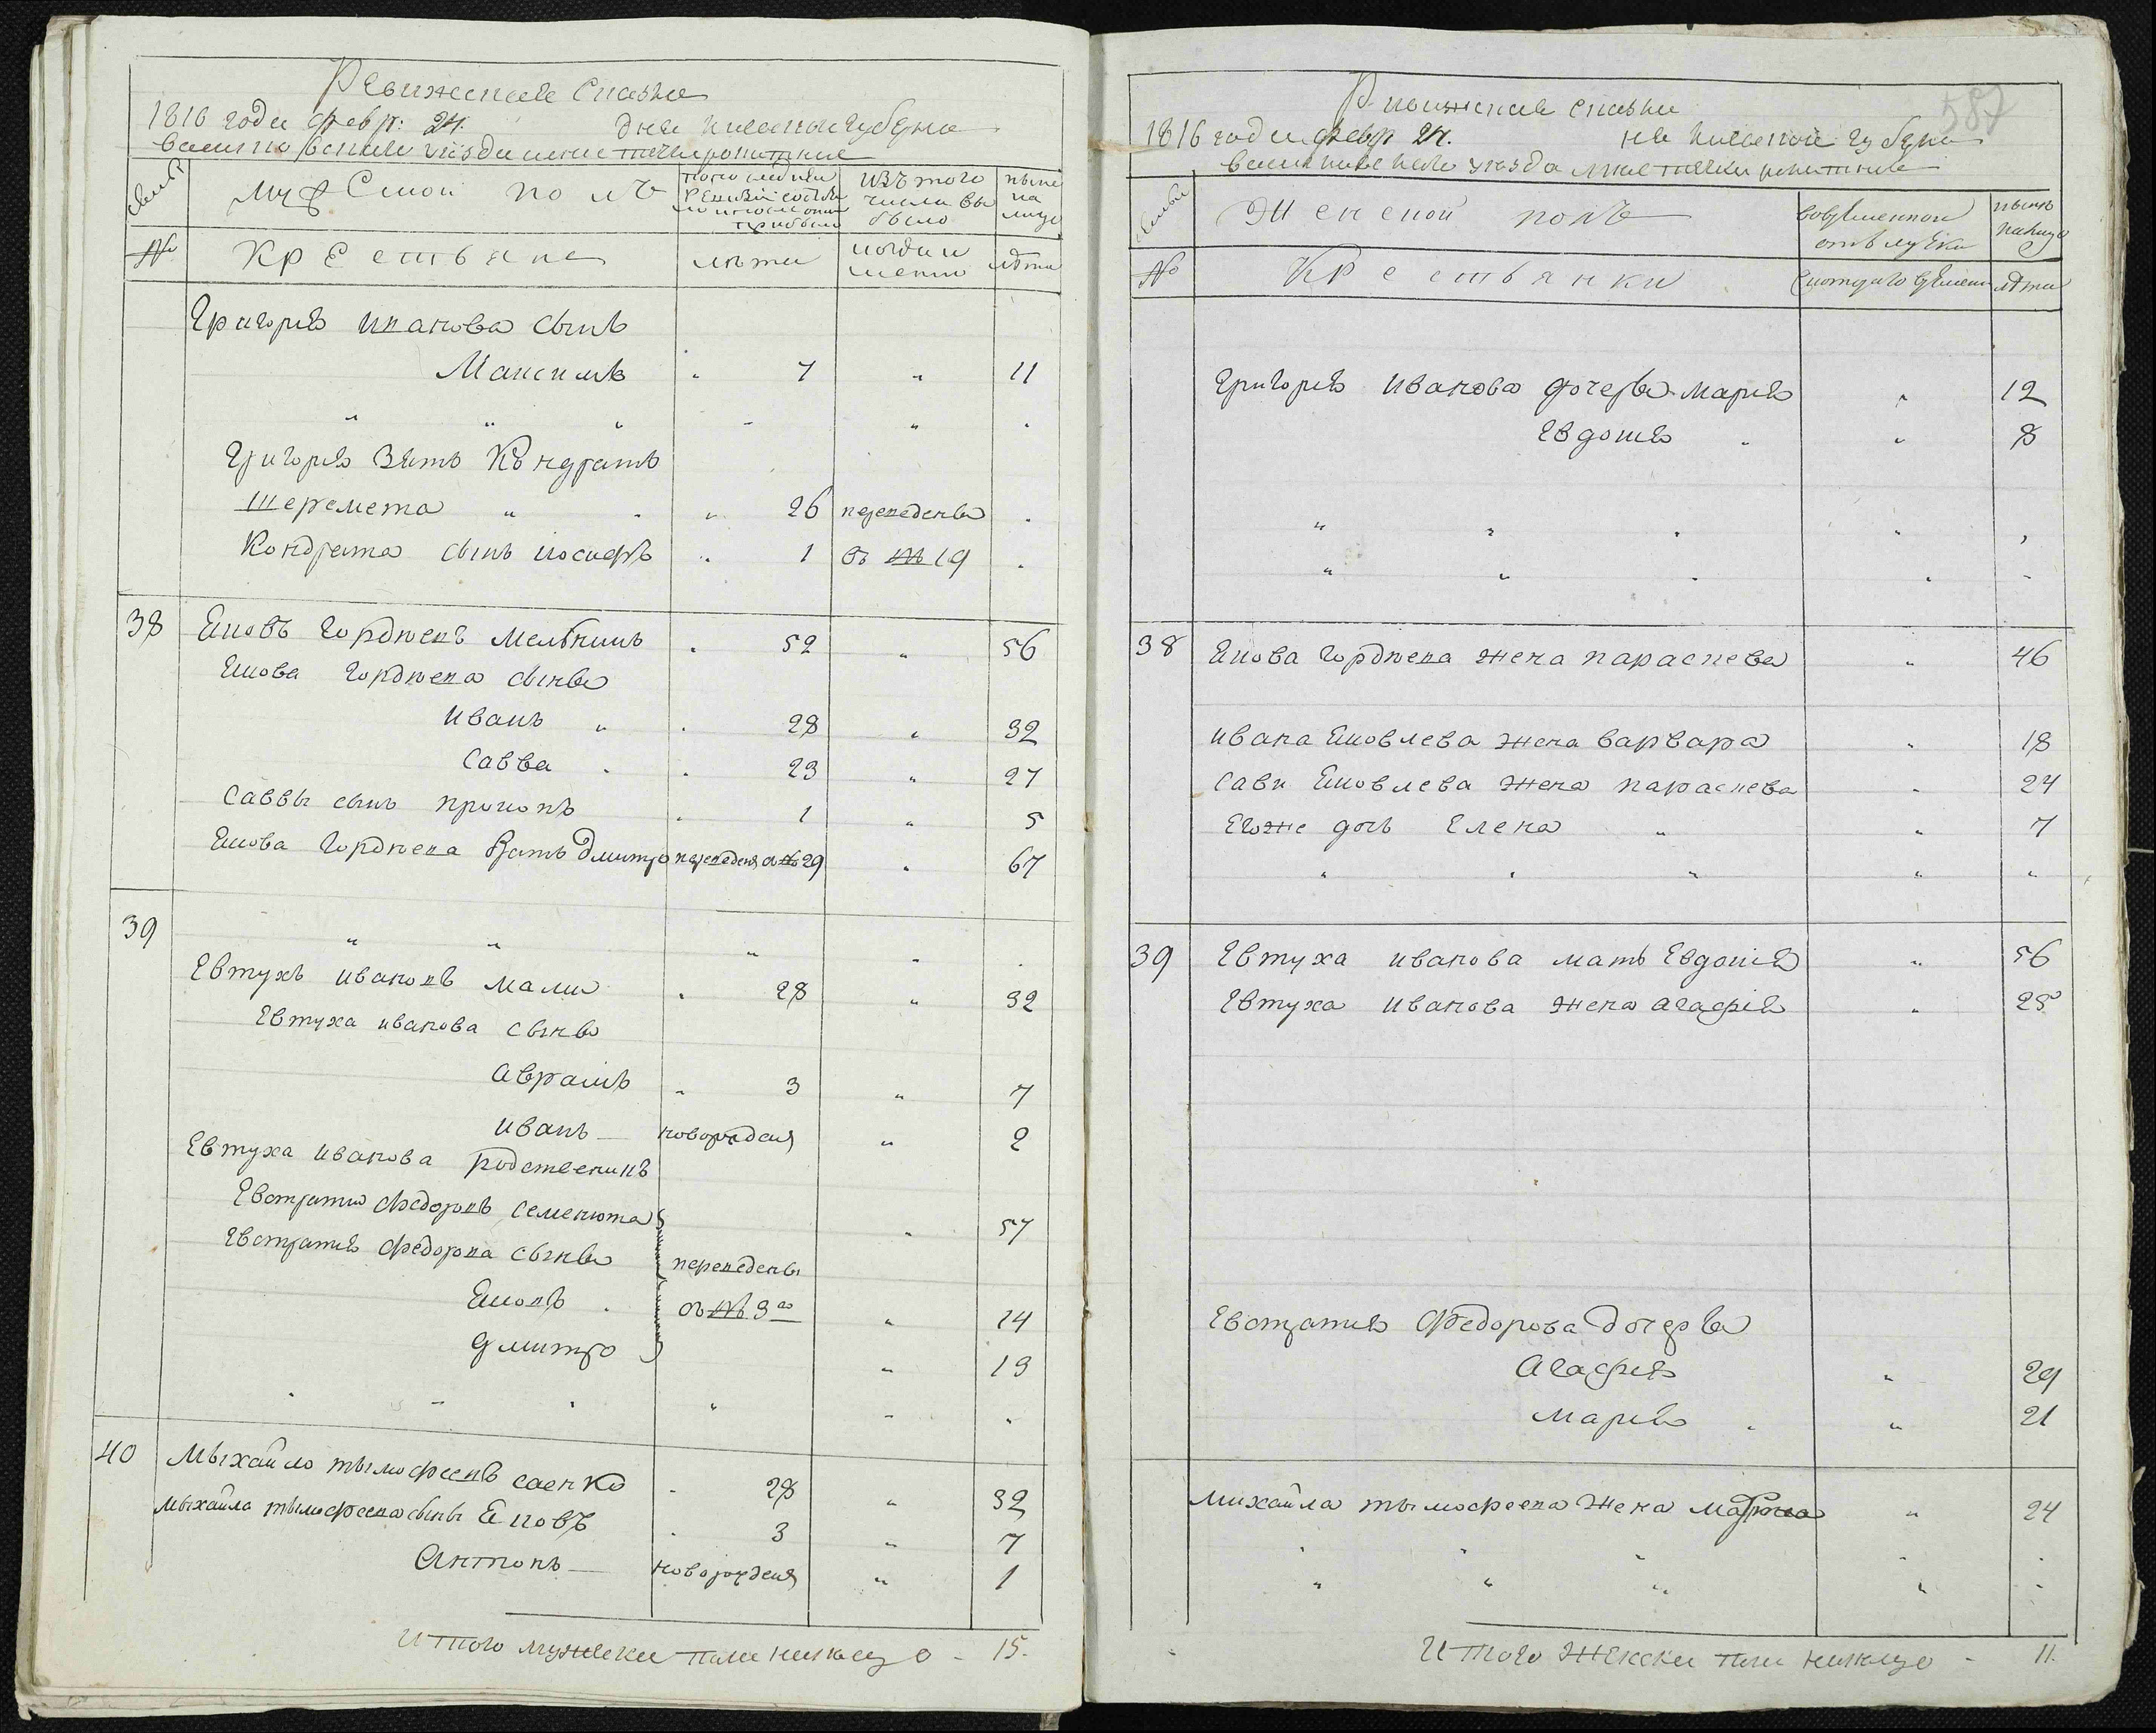 Ревижская Сказка
1816 года февр: 24. дня Киевской губерни
Василковскаго уезда мистечка рокитное
семьи
Мужеской полъ
По последней Ревизии состояло и после оной прибыло
Изъ того числа выбыло
ныне на лицо
№
Крестьяне
лета
когда именно
лета
Григорія иванова сынъ
Максимъ " 7 " 11
" " " " " "
Григорія Зять Кондратъ
Шеремета " " 26 переведены
Кондрата сынъ иосифъ " 1 въ № 19
38 Яковъ Гордѣевъ Мельникъ " 52 " 56
Якова Гордѣева сыны
иванъ " " 28 " 32
Савва " " 23 " 27
Саввы сынъ прокопъ " 1 " 5
Якова Гордѣева братъ Дмитро переведен съ № 29 " 67
39 " " " " "
Евтухъ ивановъ Малій " 28 " 32
Евтуха иванова сыны
Аврамъ " 3 " 7
иванъ — новорожден " 2
Евтуха иванова родственикъ
Евстратій Федоровъ Семенюта " 57
Евстратія Федорова сыны переведены
Яковъ " съ № 3го " 14
Дмитро " 13
" " " " " "
40 Мыхайло тымофеевъ саенко " 28 " 32
Мыхайла тымофеева сыны Яковъ " 3 " 7
Антонъ — новорожден " 1
Итого мужеска пола налицо - 15.
587
Ревижская сказка
1816 года февр 24. дня Киевской губерни
Василковскаго уезда мистечка рокитное
семьи
Женской полъ
Во временной отлучки
ныне налицо
№
Крестьянки
Скотораго времени
лета
Григорія иванова дочеры Марія " 12
Евдокія " " 8
" " " " "
" " " " "
38 Якова Гордѣева жена параскева " 46
ивана Яковлева жена варвара " 18
Сави Яковлева жена параскева " 24
Егоже дочь Елена " " 7
" " " " "
39 Евтуха иванова мать Евдокія " 56
Евтуха иванова жена агафія " 25
Евстратія Федорова дочеры
Агафія " 29
марія " " 21
Михайла тымофеева жена Марфа " 24
" " " " "
" " " " "
Итого женска пола налицо - 11.